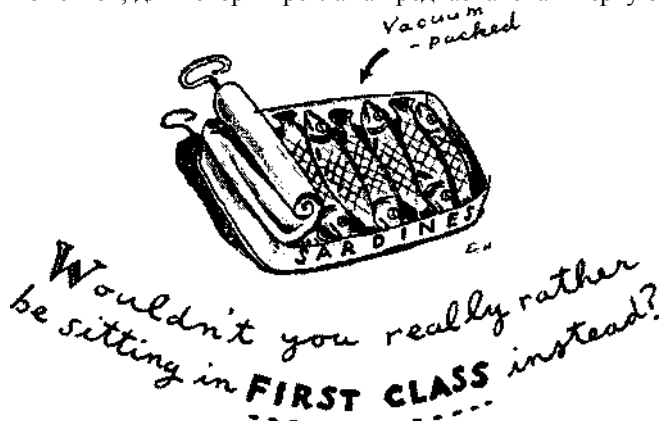 Vacuum
- packed
SARDINES
Wouldn't you really rather
be sitting in FIRST CLASS instead?